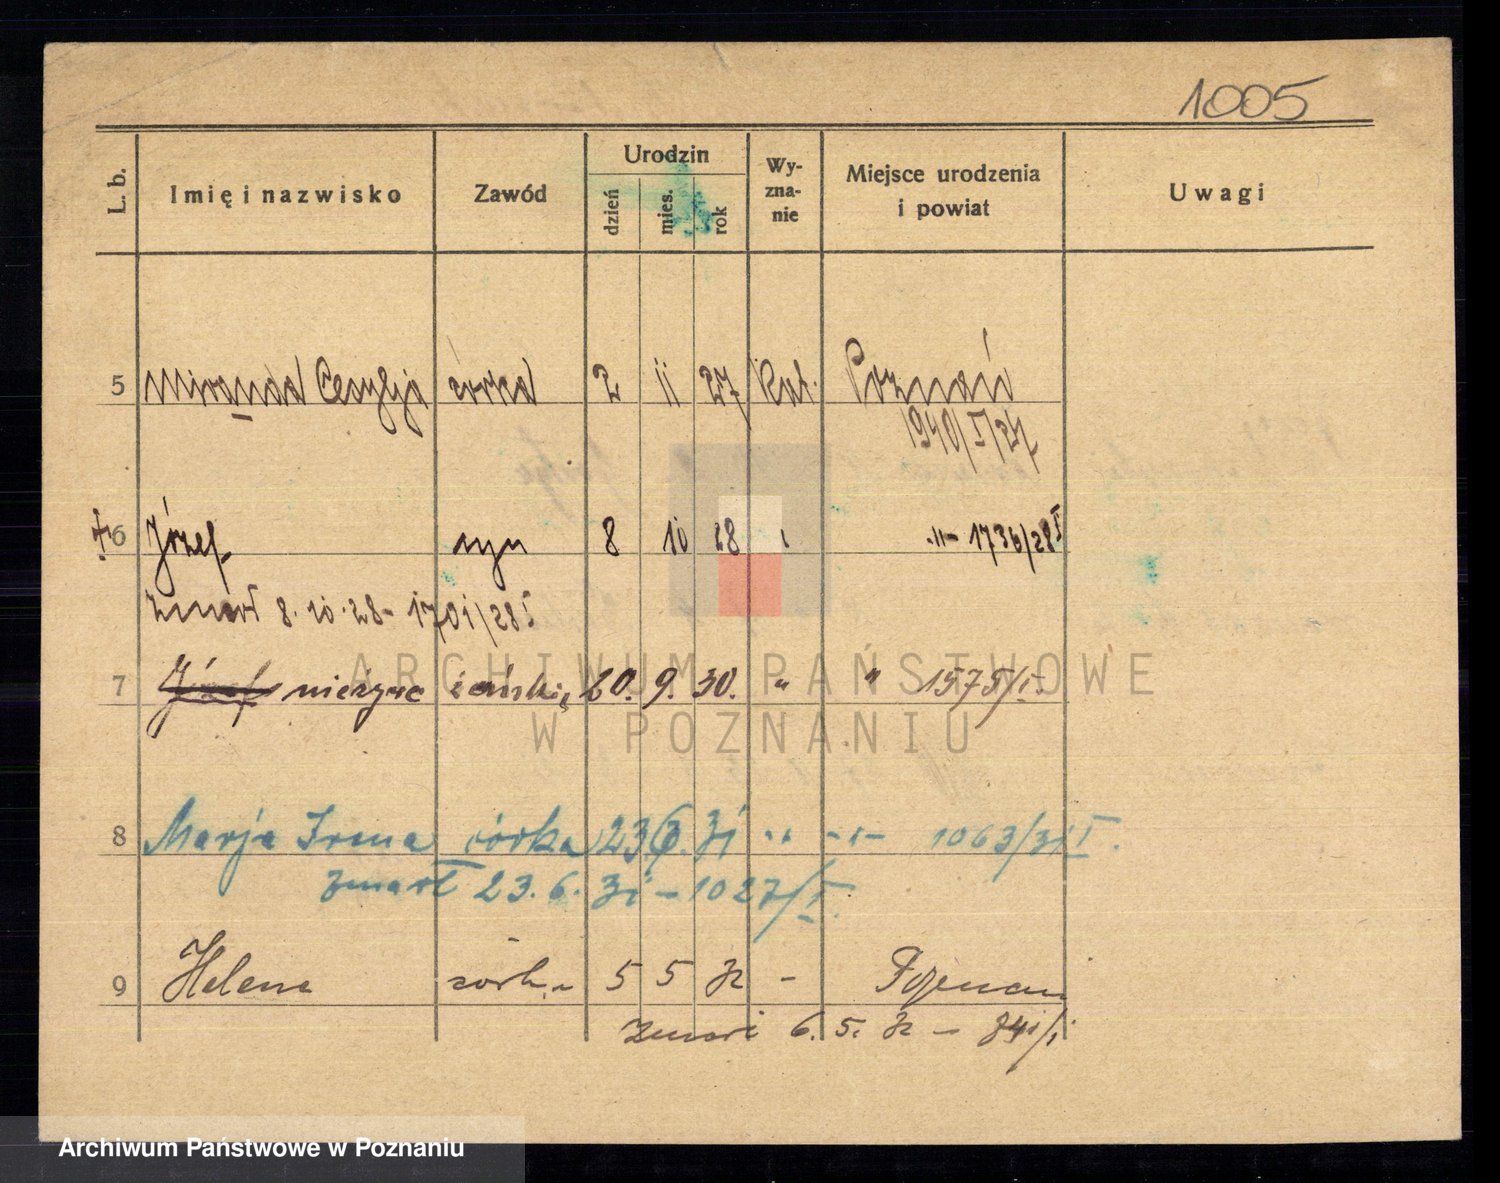 1005
L. b. Imię i nazwisko Zawód Urodzin dzień mies. rok Wy-zna-nie Miejsce urodzenia i powiat Uwagi
5 Miranda Cecylja córka 2 11 27 Kat. Poznań
1940/I/27
6 Józef syn 8 10 28 -"- 1736/28 I
zmarł 8. 10. 28 - 1701/28 I
7 Józef nieżywe żeńskie 20. 9. 30. " " 1575/I.
ARCHIWUM PAŃSTWOWE
W POZNANIU
8 Marja Irena córka 23 6. 31 -"- 1063/31 I.
zmarł 23. 6. 31 - 1027/I.
9 Helena córka 5 5 32 - Poznań
zmarł 6. 5. 32 - 841/I
Archiwum Państwowe w Poznaniu